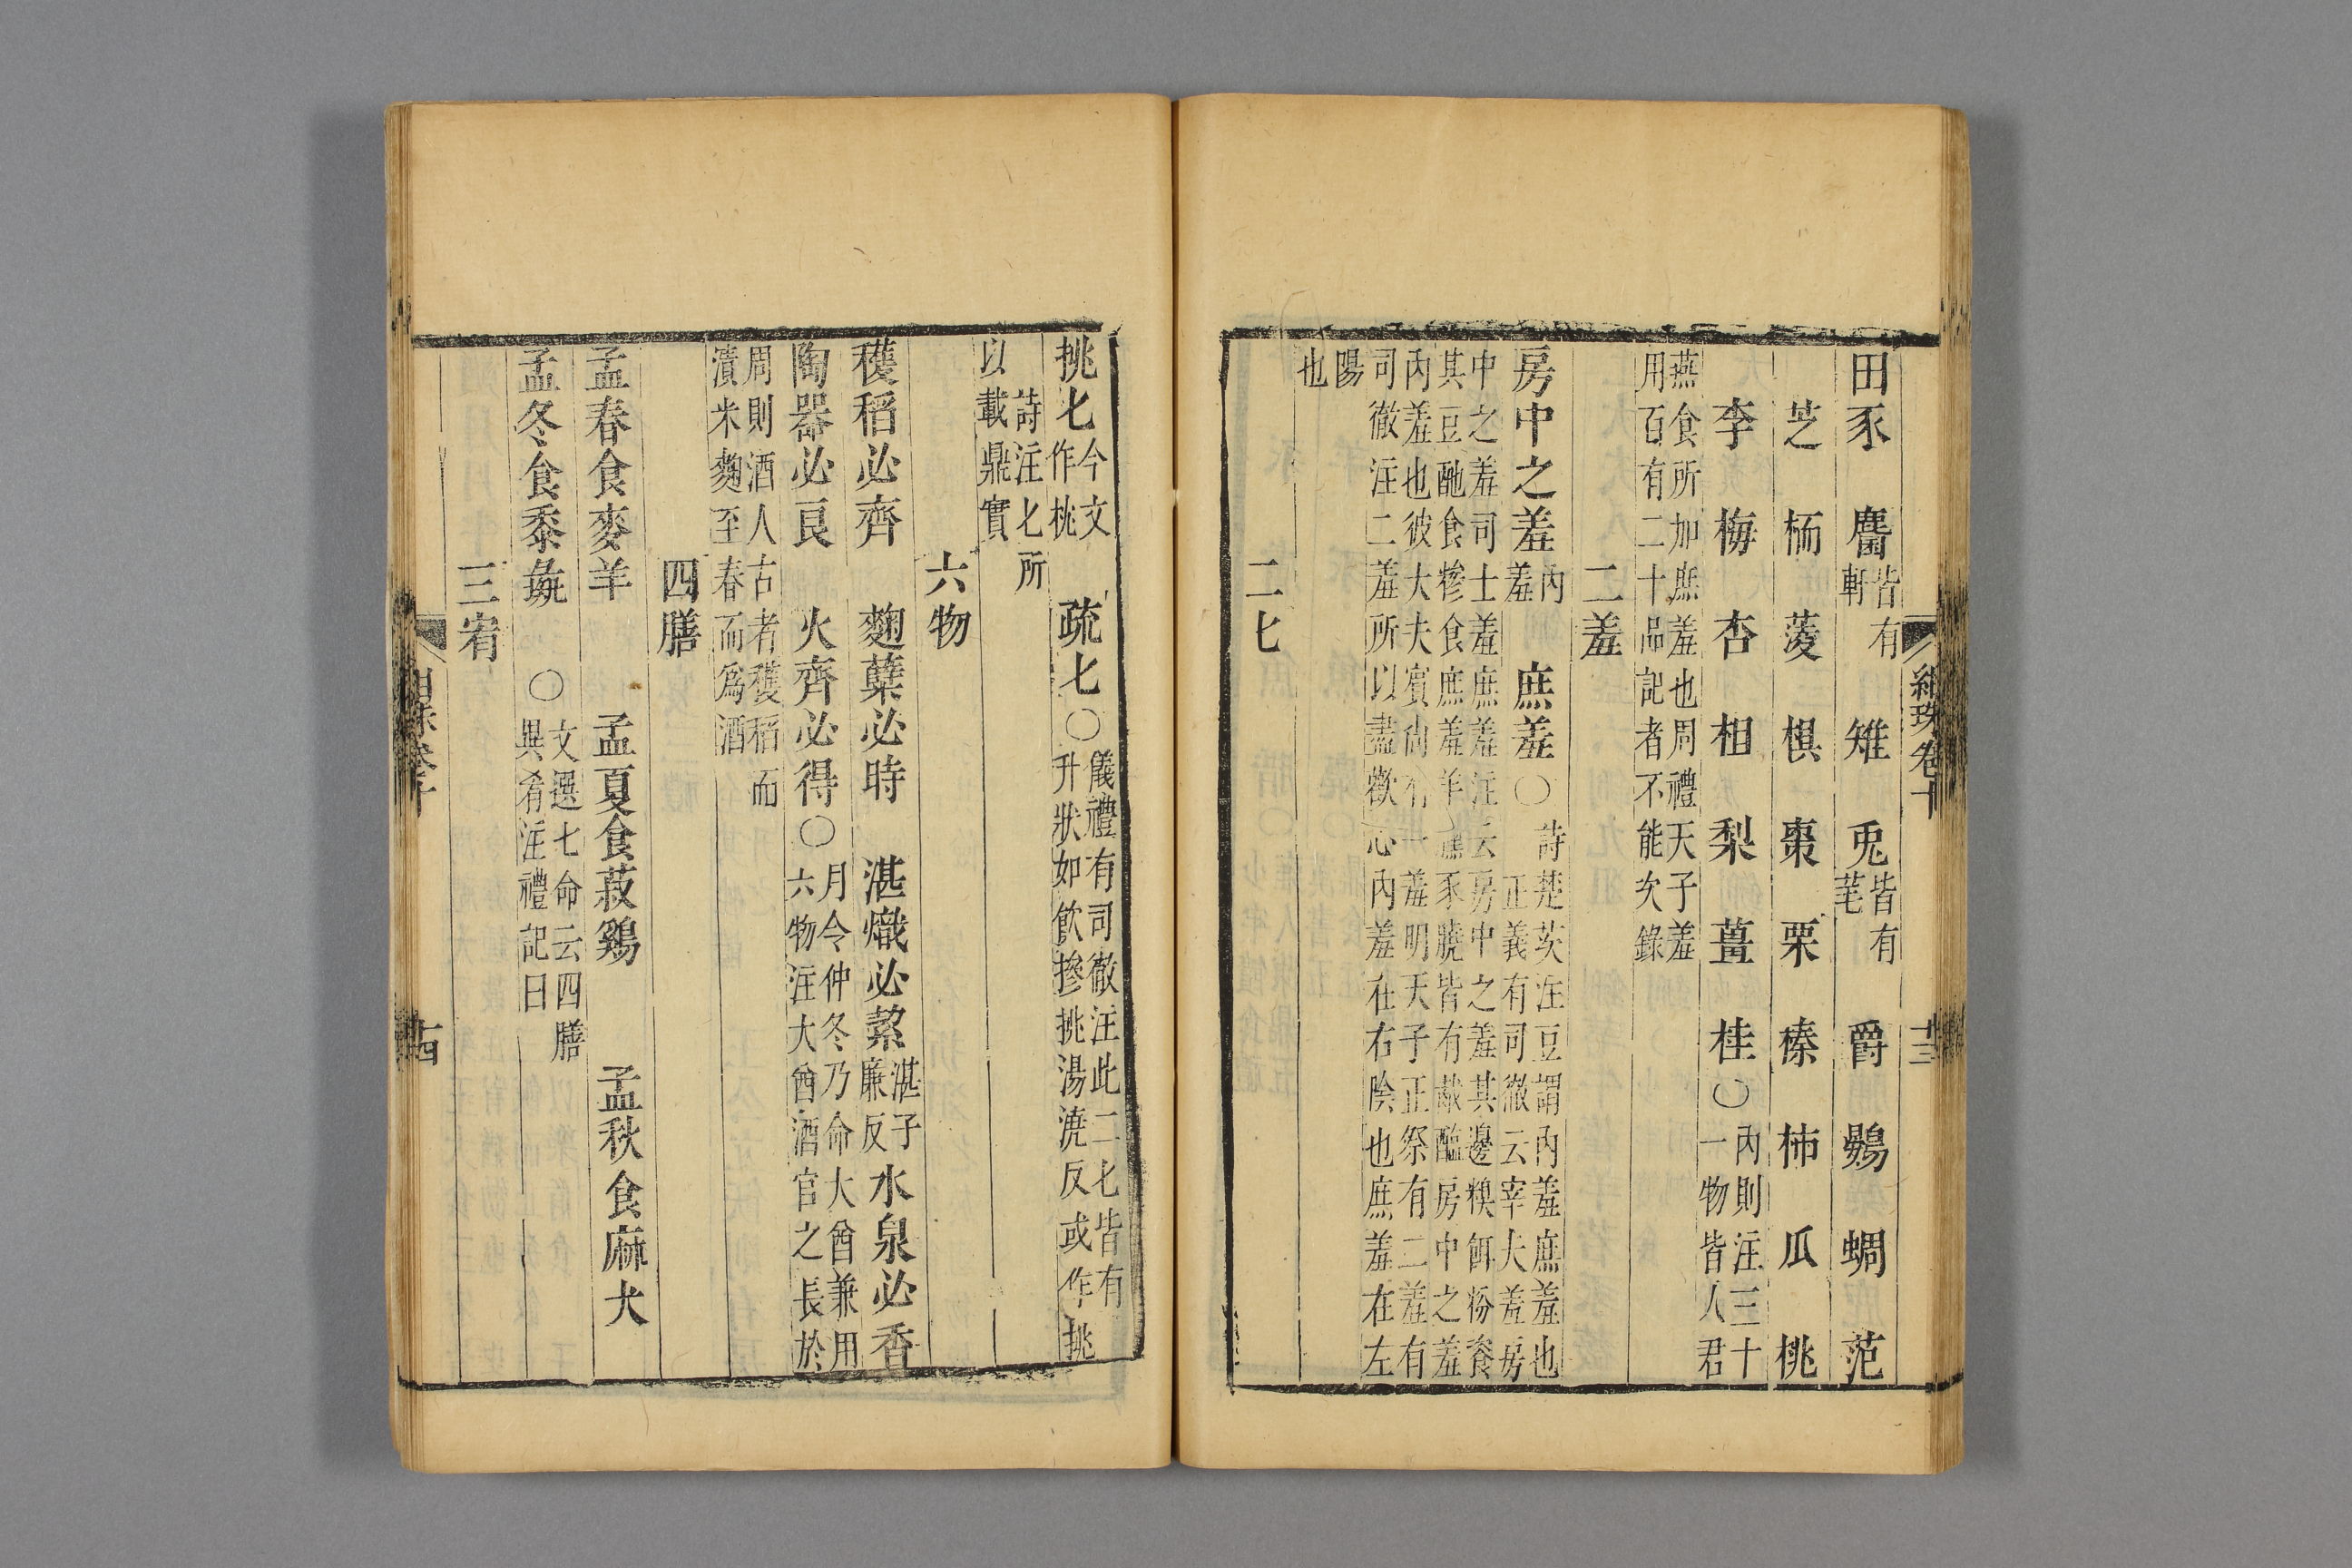 紺珠卷十
十三
田豕 麕皆有軒 雉 兎皆有芼 爵 鷃 蜩 范
芝 栭 蔆 椇 棗 栗 榛 柿 瓜 桃
李 梅 杏 柤 梨 薑 桂〇內則注三十一物皆人君
燕食所加庶羞也周禮天子羞用百有二十品記者不能次錄
二羞
房中之羞內羞 庶羞〇詩楚茨注豆謂內羞庶羞也正義有司徹云宰夫羞房
中之羞司士羞庶羞注云房中之羞其籩糗餌粉餈其豆酏食糝食庶羞羊臐豕膮皆有胾醢房中之羞
內羞也彼大夫賓尚有二羞明天子正祭有二羞有司徹注二羞所以盡歡心內羞在右陰也庶羞在左
陽也
二七
挑匕今文作桃 疏匕〇儀禮有司徹注此二匕皆有升狀如飲摻挑湯澆反或作挑
詩注匕所以載鼎實
六物
穫稻必齊 麴蘖必時 湛熾必絜湛子廉反水泉必香
陶器必良 火齊必得〇月令仲冬乃命大酋兼用六物注大酋酒官之長於
周則酒人古者穫稻而漬米麴至春而爲酒
四膳
孟春食麥羊 孟夏食菽鷄 孟秋食麻犬
孟冬食黍彘 〇文選七命云四膳異肴注禮記曰
三宥
十四